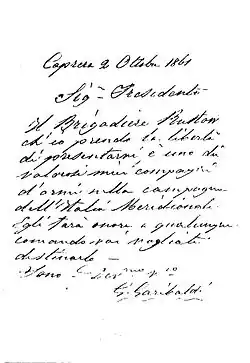 Caprera 2 Ottobre 1861
Sig.r Presidente
il Brigadiere Rustow
ch'io prendo la libertà
di presentarvi è uno dei
valorosi miei compagni
d'armi nella campagna
dell'Italia Meridionale.
Egli farà onore a qualunque
comando voi vogliate
destinarlo –
Sono
G. Garibaldi